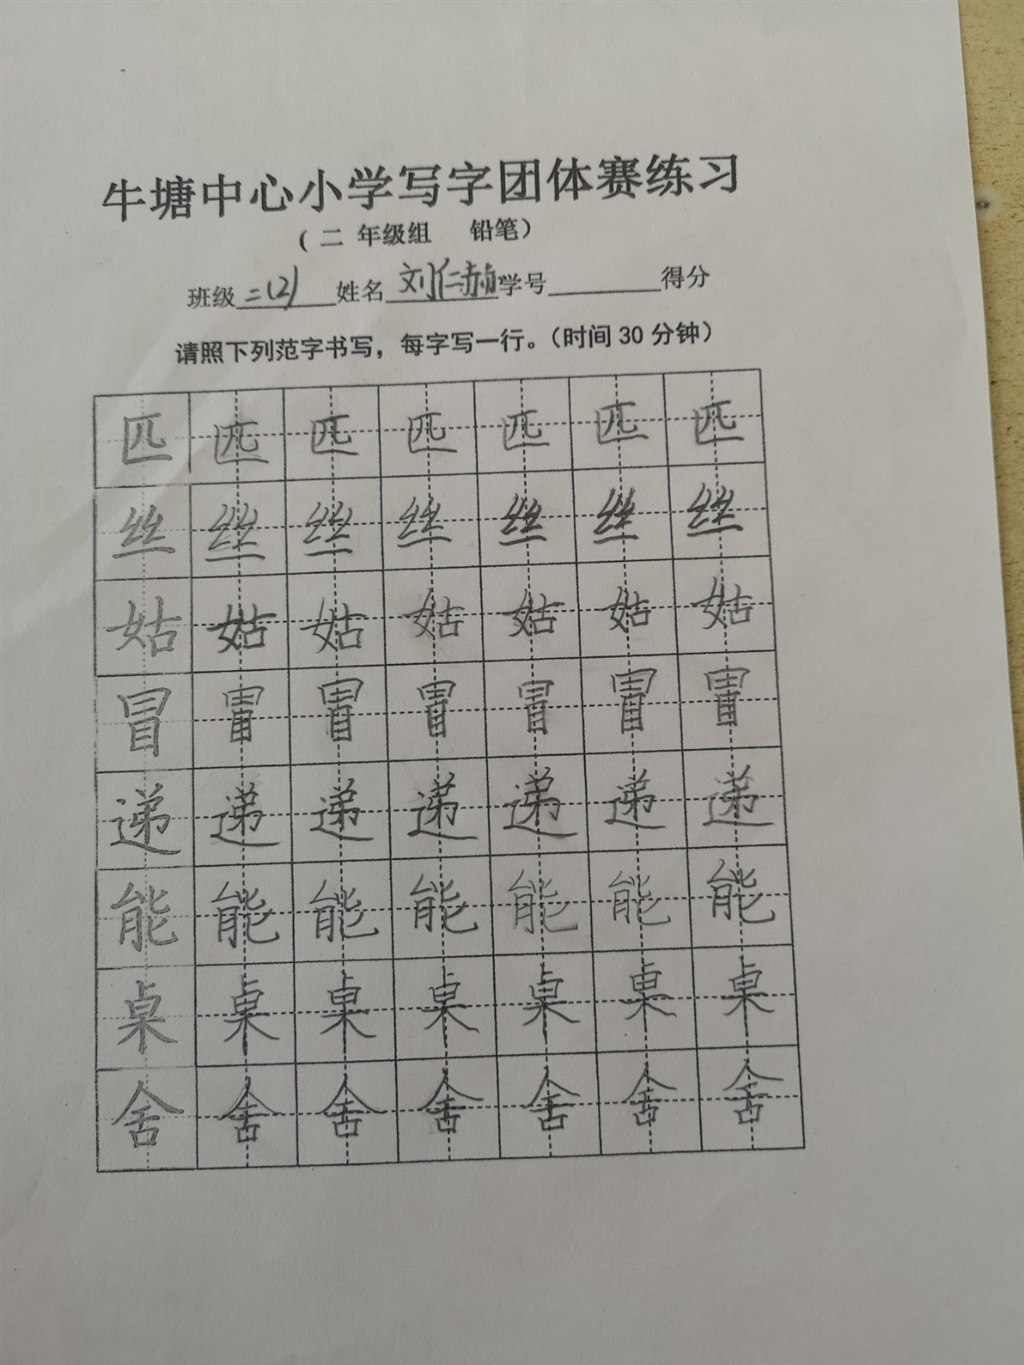 牛塘中心小学写字团体赛练习
( 二 年级组 铅笔）
班级二(2) 姓名刘仁赫学号________得分
请照下列范字书写，每字写一行。（时间 30 分钟）
匹 匹 匹 匹 匹 匹 匹
丝 丝 丝 丝 丝 丝 丝
姑 姑 姑 姑 姑 姑 姑
冒 冒 冒 冒 冒 冒 冒
递 递 递 递 递 递 递
能 能 能 能 能 能 能
桌 桌 桌 桌 桌 桌 桌
舍 舍 舍 舍 舍 舍 舍